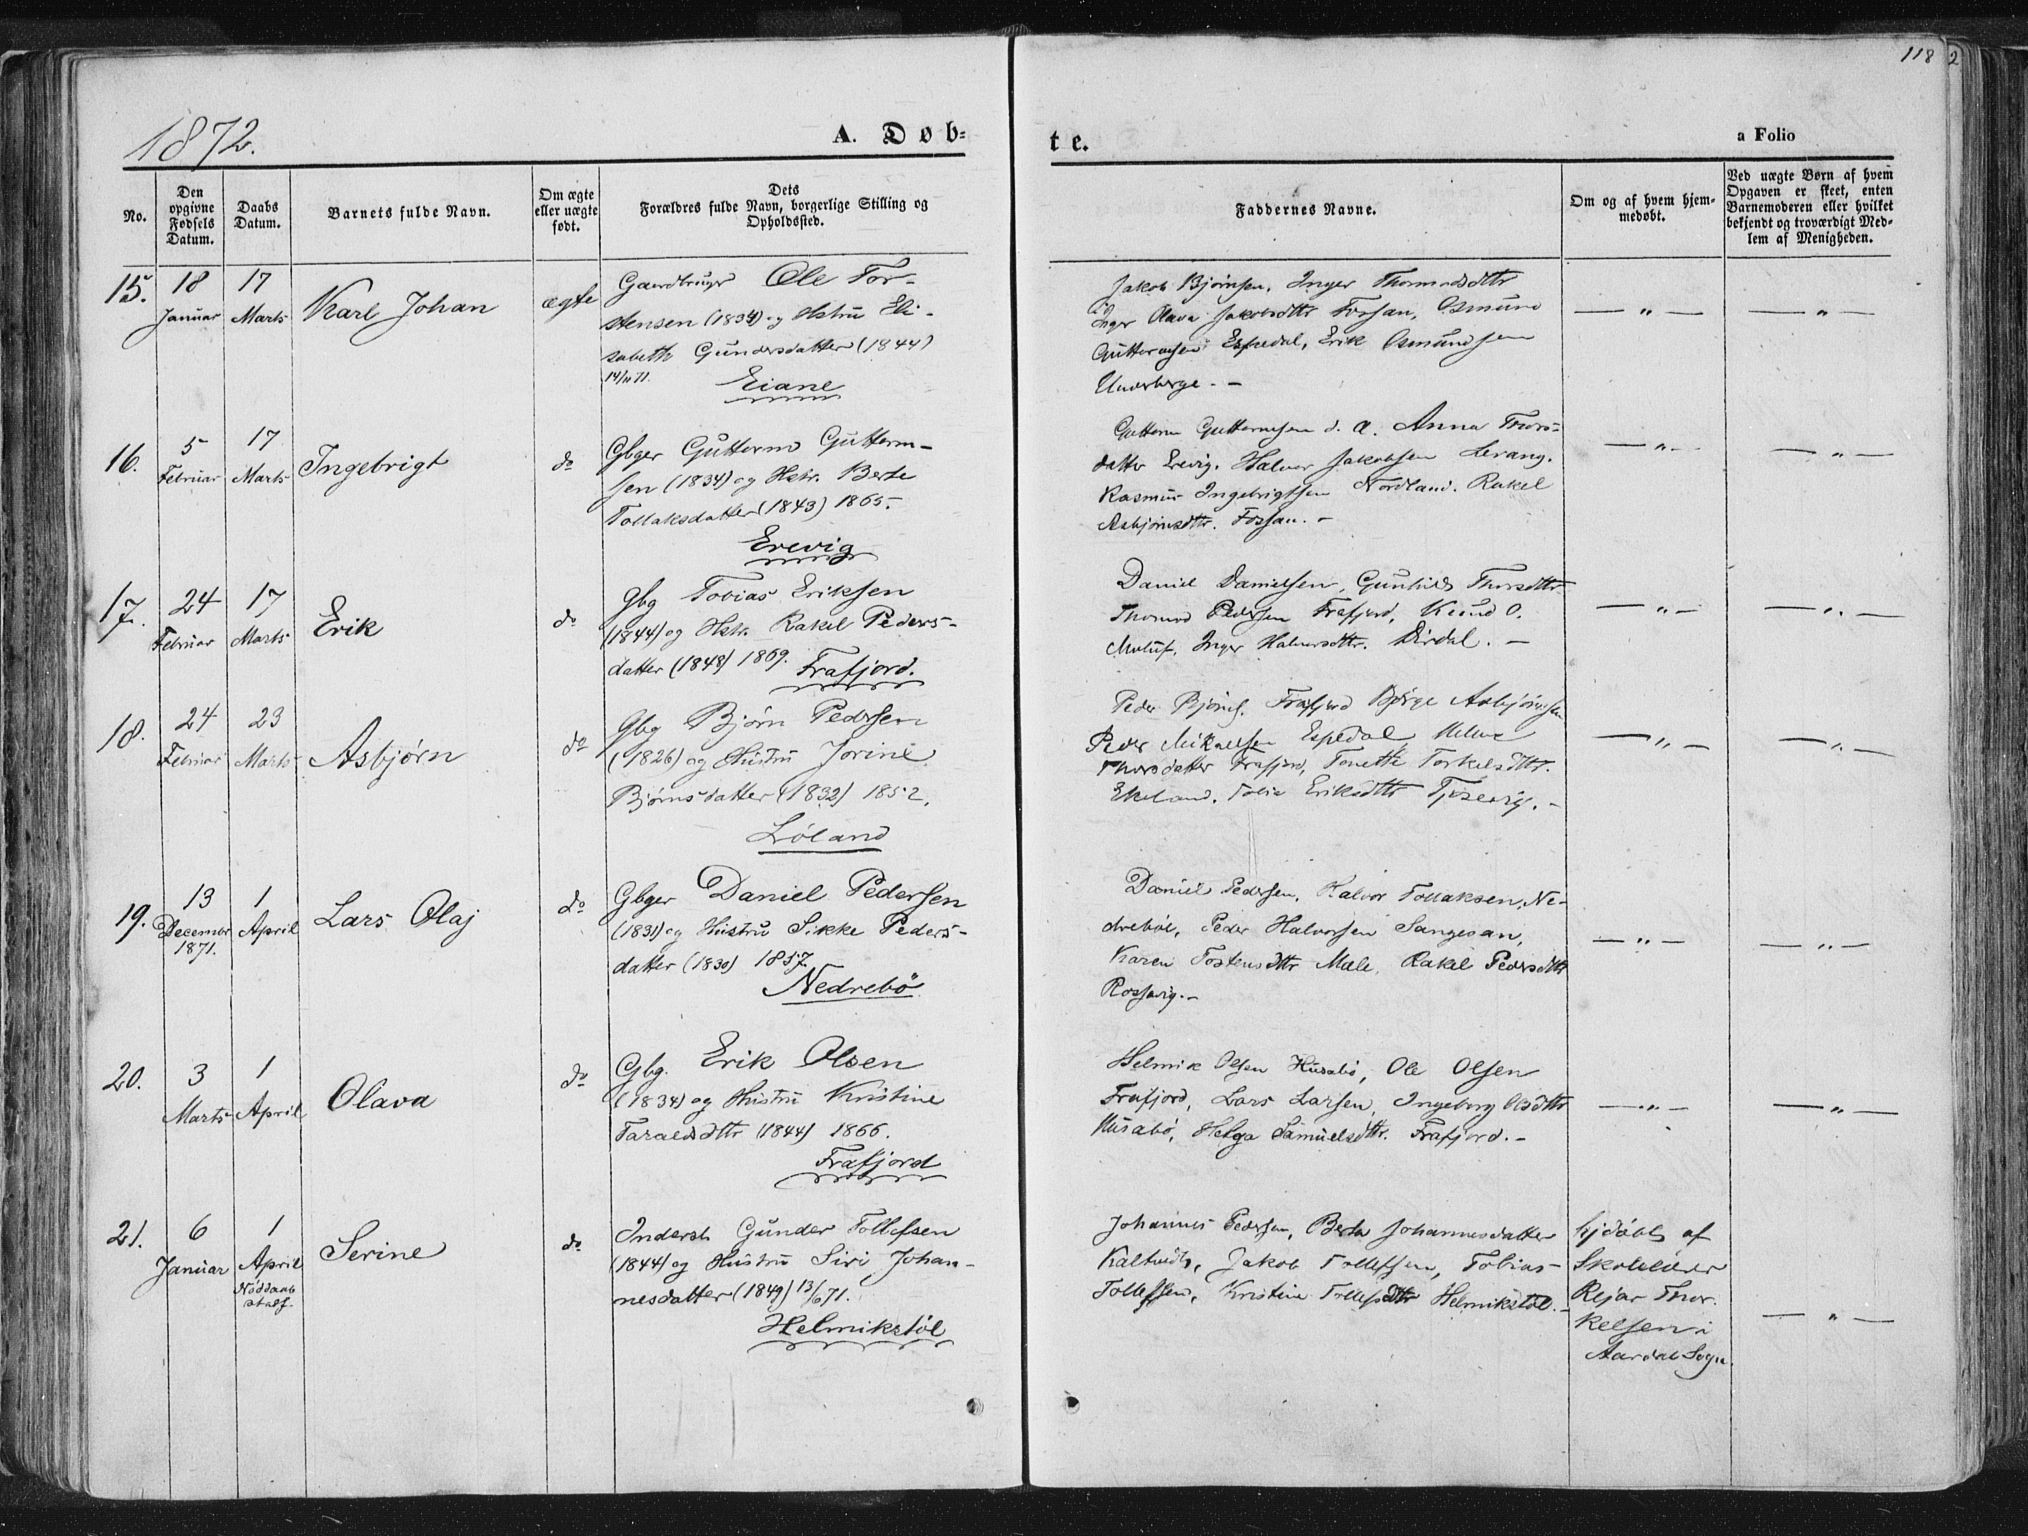 118
2
1872.
A. Døb-
te.
a Folio
No.
Den
opgivne
Fødsels
Datum.
Daabs
Datum.
Barnets fulde Navn.
Om ægte
eller uægte
født.
Dets
Forældres fulde Navn, borgerlige Stilling og
Opholdssted.
Faddernes Navne.
Om og af hvem hjem-
medøbt.
Ved uægte Børn af hvem
Opgaven er skeet, enten
Barnemoderen eller hvilket
bekjendt og troværdigt Med-
lem af Menigheden.
15.
18
Januar
17
Marts
Karl Johan
ægte
Gaardbruger Ole Tor-
stensen (1834) og Hstru Eli-
sabeth Gundersdatter (1844)
14/11 71.
Eiane
Jakob Bjørnsen, Inger
Inger Olava Jakobsdttr Fossan, Osmund
Guttormsen Espedal, Erik Osmundsen
Underberge. -
— " —
— " —
16.
5
Februar
17
Marts
Ingebrigt
do
Gbger Guttorm Guttorm-
sen (1834) og Hstr. Berte
Tollaksdatter (1843) 1865.
Erevig
Guttorm Guttormsen d. æ. Anna Thors-
datter Erevig. Halvor Jakobsen Lerang.
Rasmus Ingebrigtsen Nordland. Rakel
Asbjørnsdttr. Fossan. -
— " —
— " —
17.
24
Februar
17
Marts
Erik
do
Gbg Tobias Eriksen
(1844) og Hstr. Rakel Peders-
datter (1848) 1869.
Frafjord.
Daniel Danielsen, Gunhild Thorsdttr
Thomod Pedersen Frafjord, Knud O.
Inger Halvorsdttr. Dirdal. -
— " —
— " —
18.
24
Februar
23
Marts
Asbjørn
do
Gbg Bjørn Pedersen
(1826) og Hustru Jorine
Bjørnsdatter (1832) 1852.
Løland
Peder Bjørns. Frafjord Børge Asbjørnsen
Peder Mikaelsen Espedal Helene
Thorsdatter Frafjord, Tonette Torkelsdttr.
Ekeland. Eriksdttr -
— " —
— " —
19.
13
December
1871.
1
April
Lars Olaj
do
Gbger Daniel Pedersen
(1831) og Hustru Sikke Peders-
datter (1830) 1857.
Nedrebö
Daniel Pedersen, Halvor Tollaksen, Ne-
drebøe, Peder Halvorsen Sangesan,
Karen Tostensdttr Mæle, Rakel Pedersdttr
Rossavig. -
— " —
— " —
20.
3
Marts
1
April
Olava
do
Gbg. Erik Olsen
(1834) og Hustru Kristine
Taraldsdttr (1844) 1866.
Frafjord
Helmik Olsen Husabø, Ole Olsen
Frafjord, Lars Larsen, Ingeborg Olsdttr
Husabø, Helga Samuelsdttr. Frafjord. -
— " —
— " —
21.
6
Januar
1
April
Nöddaab
stadf.
Serine
do
Inderst Gunder Tollefsen
(1844) og Hustru Siri Johan-
nesdatter (1849) 13/6 71.
Helmikstøl
Johannes Pedersen, Berta Johannesdatter
Kaltveit, Jakob Tollefsen, Tobias
Tollefsen, Kristine Tollefsdttr Helmikstøl. -
hjdöbt af
Skolelærer
Rejar Thor-
kelsen i
Aardal Sogn.
— " —